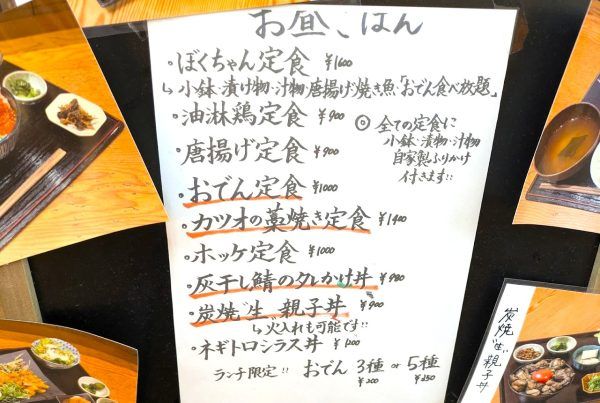 お昼ごはん
・ぼくちゃん定食 ¥1600
↳小鉢・漬け物・汁物・唐揚げ・焼き魚「おでん食べ放題」
・油淋鶏定食 ¥900
・唐揚げ定食 ¥900
◎全ての定食に
小鉢・漬物・汁物
自家製ふりかけ
付きます!!
・おでん定食 ¥1000
・カツオの藁焼き定食 ¥1400
・ホッケ定食 ¥1000
・灰干し鯖のタレかけ丼 ¥980
・炭焼"生"親子丼 ¥900
↳火入れも可能です!!
・ネギトロシラス丼 ¥1200
ランチ限定!! おでん 3種 or 5種
¥200 ¥350
炭焼"生"親子丼